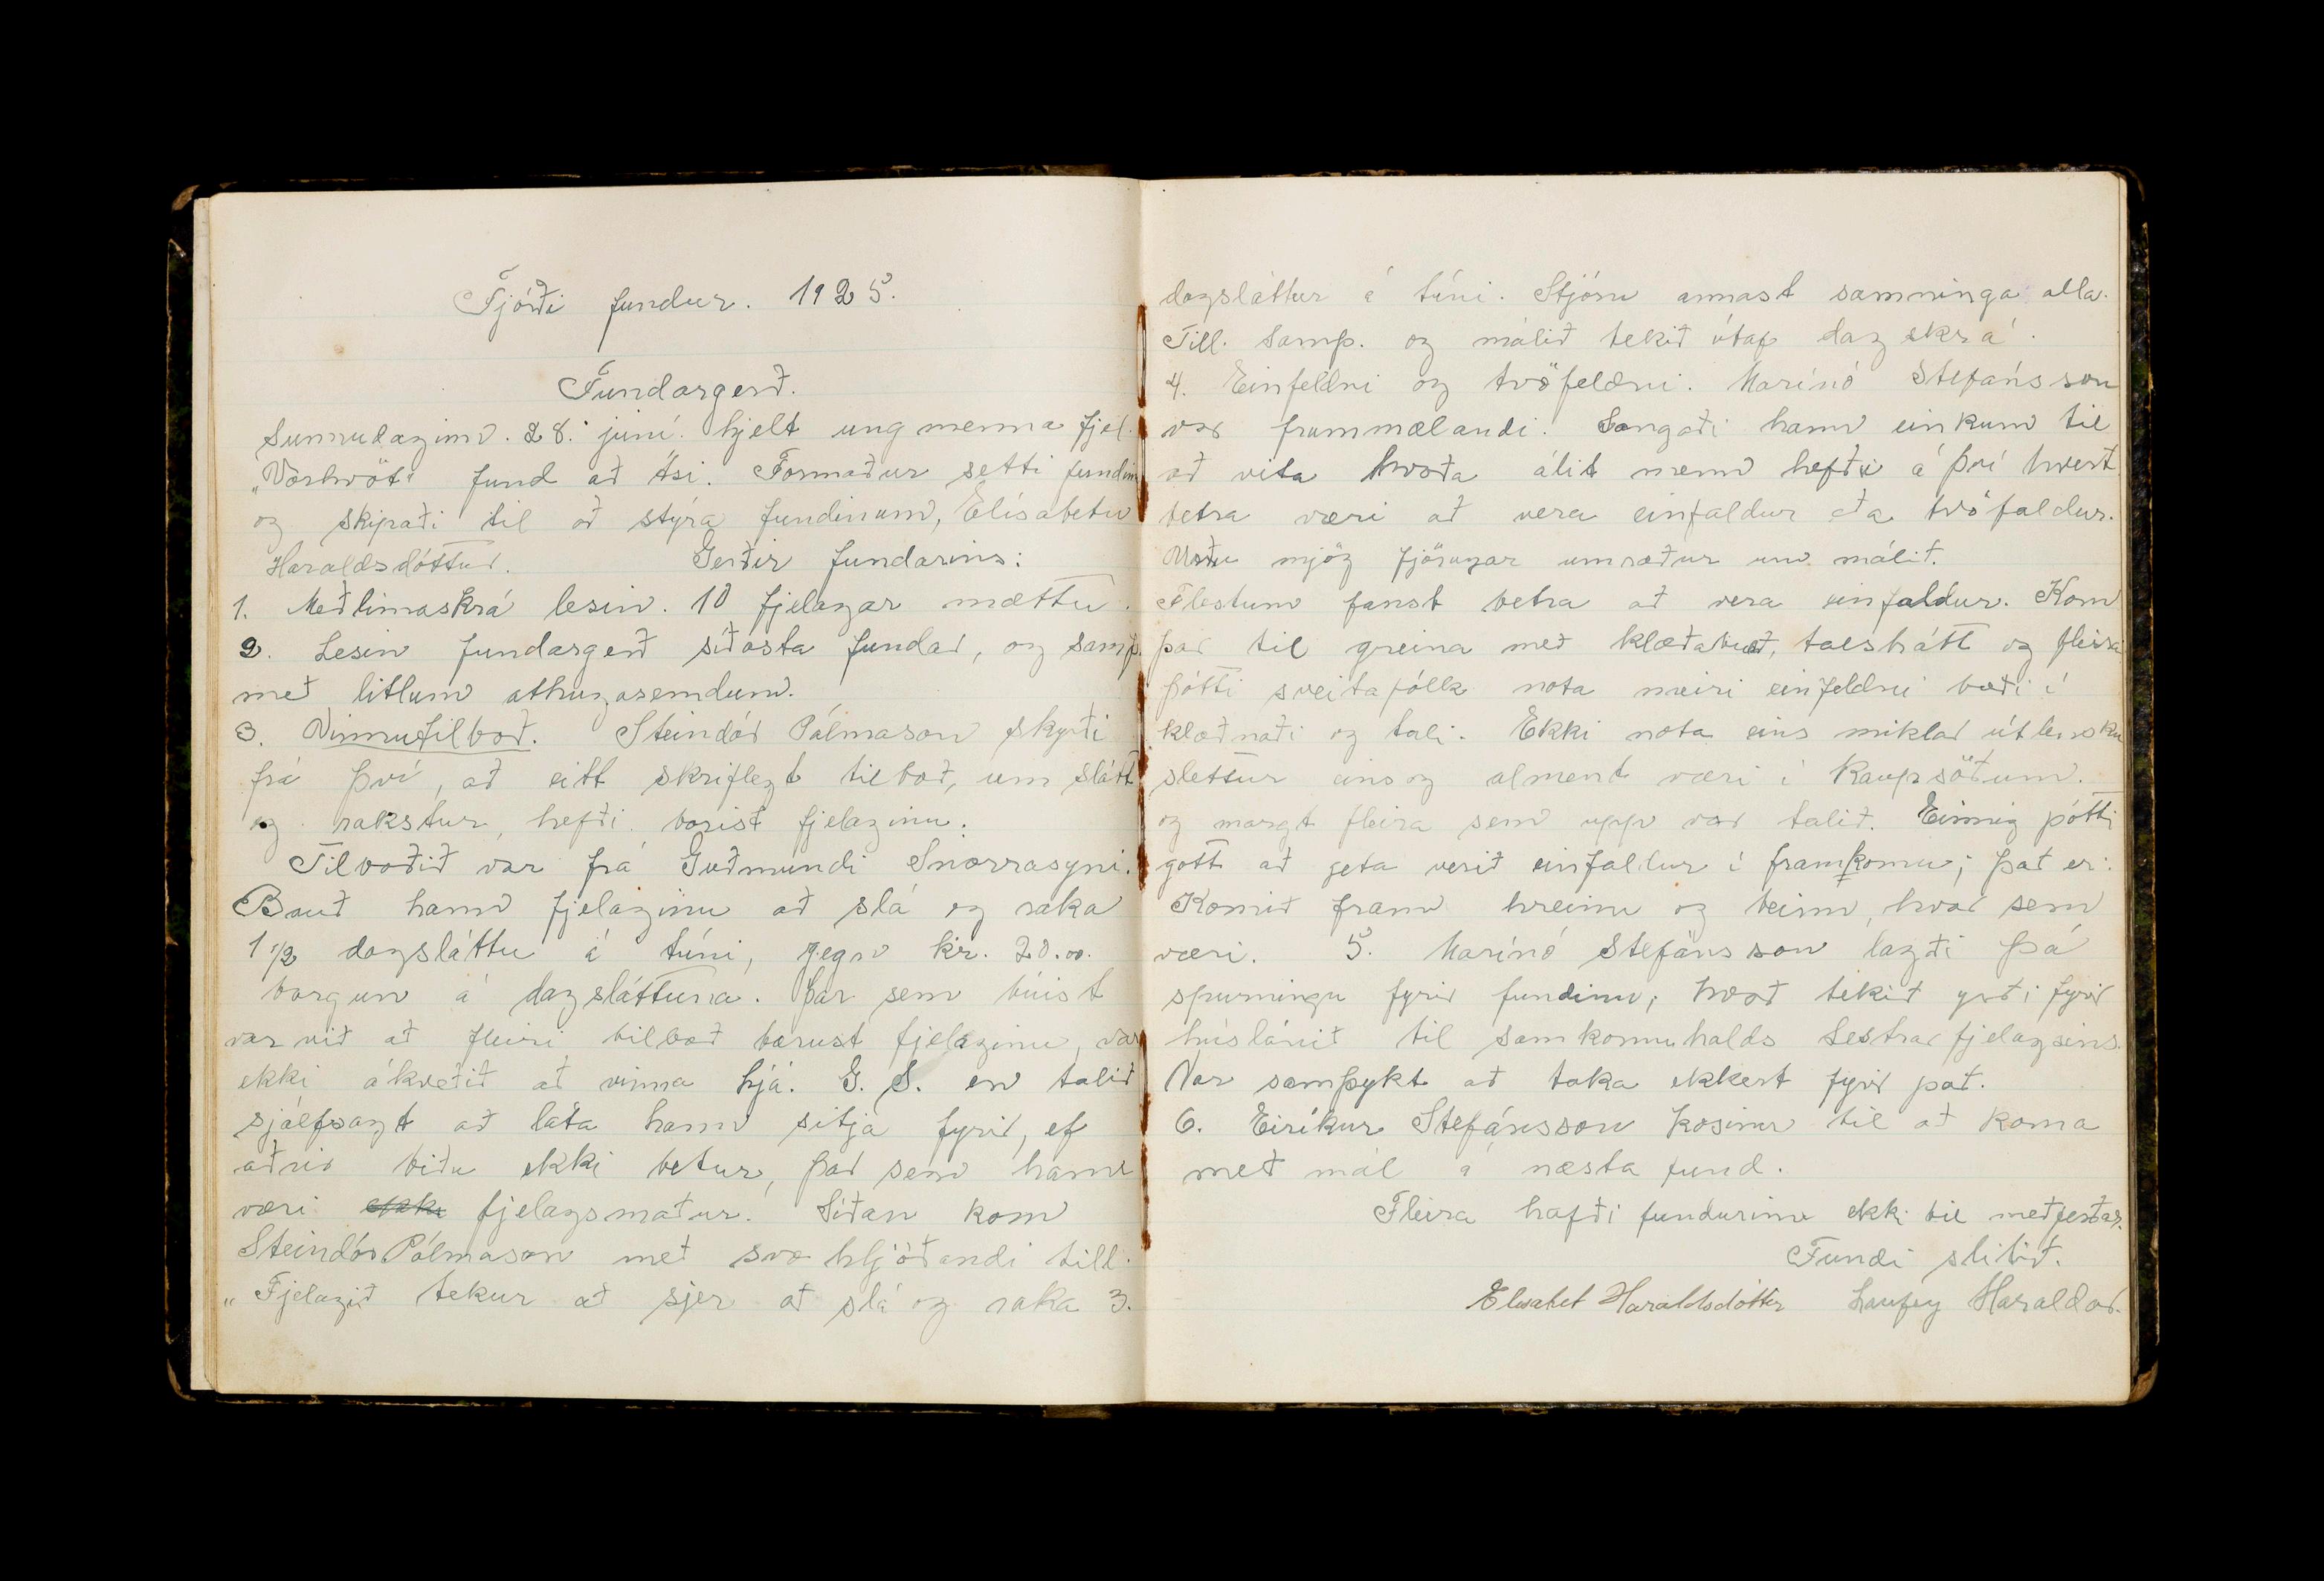 Fjórði fundur. 1925.
Fundargerð.
Sunnudaginn. 28. júní. hjelt ungmenna fjel.
„Vorhvöt" fund að Ási. Formaður setti fundinn
og skipaði til að stýra fundinum, Elísabetu
Haraldsdóttur. Gerðir fundarins:
1. Meðlimaskrá lesin. 10 fjelagar mættu.
2. Lesin fundargerð síðasta fundar, og samþ.
með litlum athugasemdum.
3. Vinnutilboð. Steindór Pálmason skyrði
frá því, að eitt skriflegt tilboð, um slátt
og rakstur, hefði borist fjelaginu.
Tilboðið var frá Guðmundi Snorrasyni.
Bauð hann fjelaginu að slá og raka
1 1/2 dagsláttu á túni, gegn kr. 20.00.
borgun á dagsláttuna. Þar sem búist
var við að fleiri tilboð bærust fjelaginu, var
ekki ákveðið að vinna hjá. G. S. en talið
sjálfsagt að láta hann sitja fyrir, ef
aðrir biðu ekki betur, þar sem hann
væri ekki fjelagsmaður. Síðan kom
Steindór Pálmason með svo hljóðandi till.
„Fjelagið tekur að sjer að slá og raka 3.
dagsláttur á túni. Stjórn annast samninga alla.
Till. samþ. og málið tekið útaf dagskrá.
4. Einfeldni og tvöfeldni. Marínó Stefánsson
var frummælandi. Langaði hann einkum til
að vita hvaða álit menn hefðu á því hvert
betra væri að vera einfaldur eða tvöfaldur.
Urðu mjög fjörugar umræður um málið.
Flestum fanst betra að vera einfaldur. Kom
þar til greina með klæðaburð, talshátt og fleira
Þótti sveitafólk nota meiri einfeldni bæði í
klæðnaði og tali. Ekki nota eins miklar útlensku
slettur eins og alment væri í kaupstöðum.
og margt fleira sem upp var talið. Einnig þótti
gott að geta verið einfaldur í framkomu; það er:
Komið fram hreinn og beinn, hvar sem
væri. 5. Marínó Stefánsson lagði þá
spurningu fyrir fundinn; hvað tekið yrði fyrir
húslánið til samkomuhalds Lestrarfjelagsins.
Var samþykt að taka ekkert fyrir það.
6. Eiríkur Stefánsson kosinn til að koma
með mál á næsta fund.
Fleira hafði fundurinn ekki til meðferðar.
Fundi slitið.
Elísabet Haraldsdóttir Laufey Haraldsd.